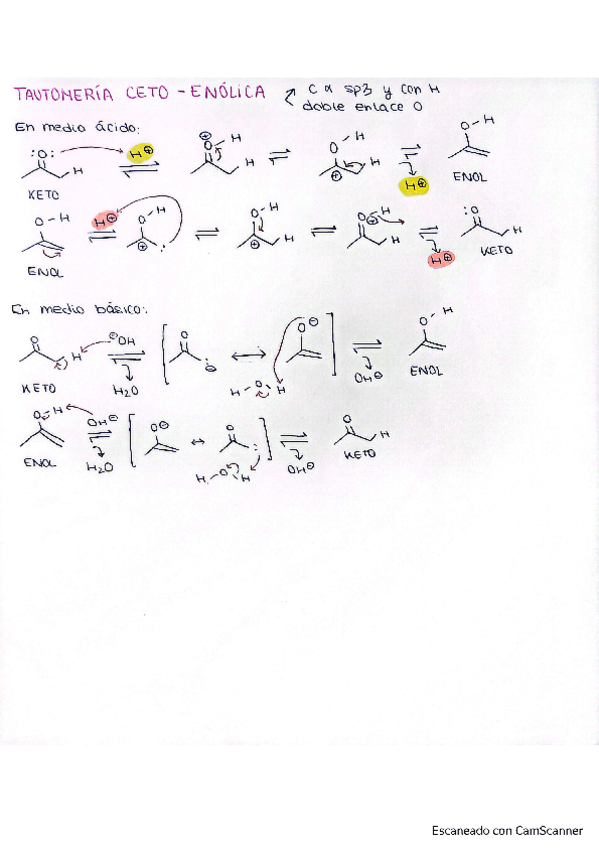 TAUTOMERÍA CETO - ENÓLICA
C α sp3 y con H
doble enlace O
En medio ácido:
:O: H⊕ ⊕ O H O H O-H
H H H H⊕ ENOL
KETO
O-H H⊕ O H O H O⊕H :O
ENOL ⊕ ⊕ H H H⊕ H KETO
En medio básico:
O H ⊖OH O ⊖ O⊖ O H
KETO H2O H-O H OH⊖ ENOL
O-H OH⊖ O⊖ O O
ENOL H2O H-O H OH⊖ H KETO
Escaneado con CamScanner